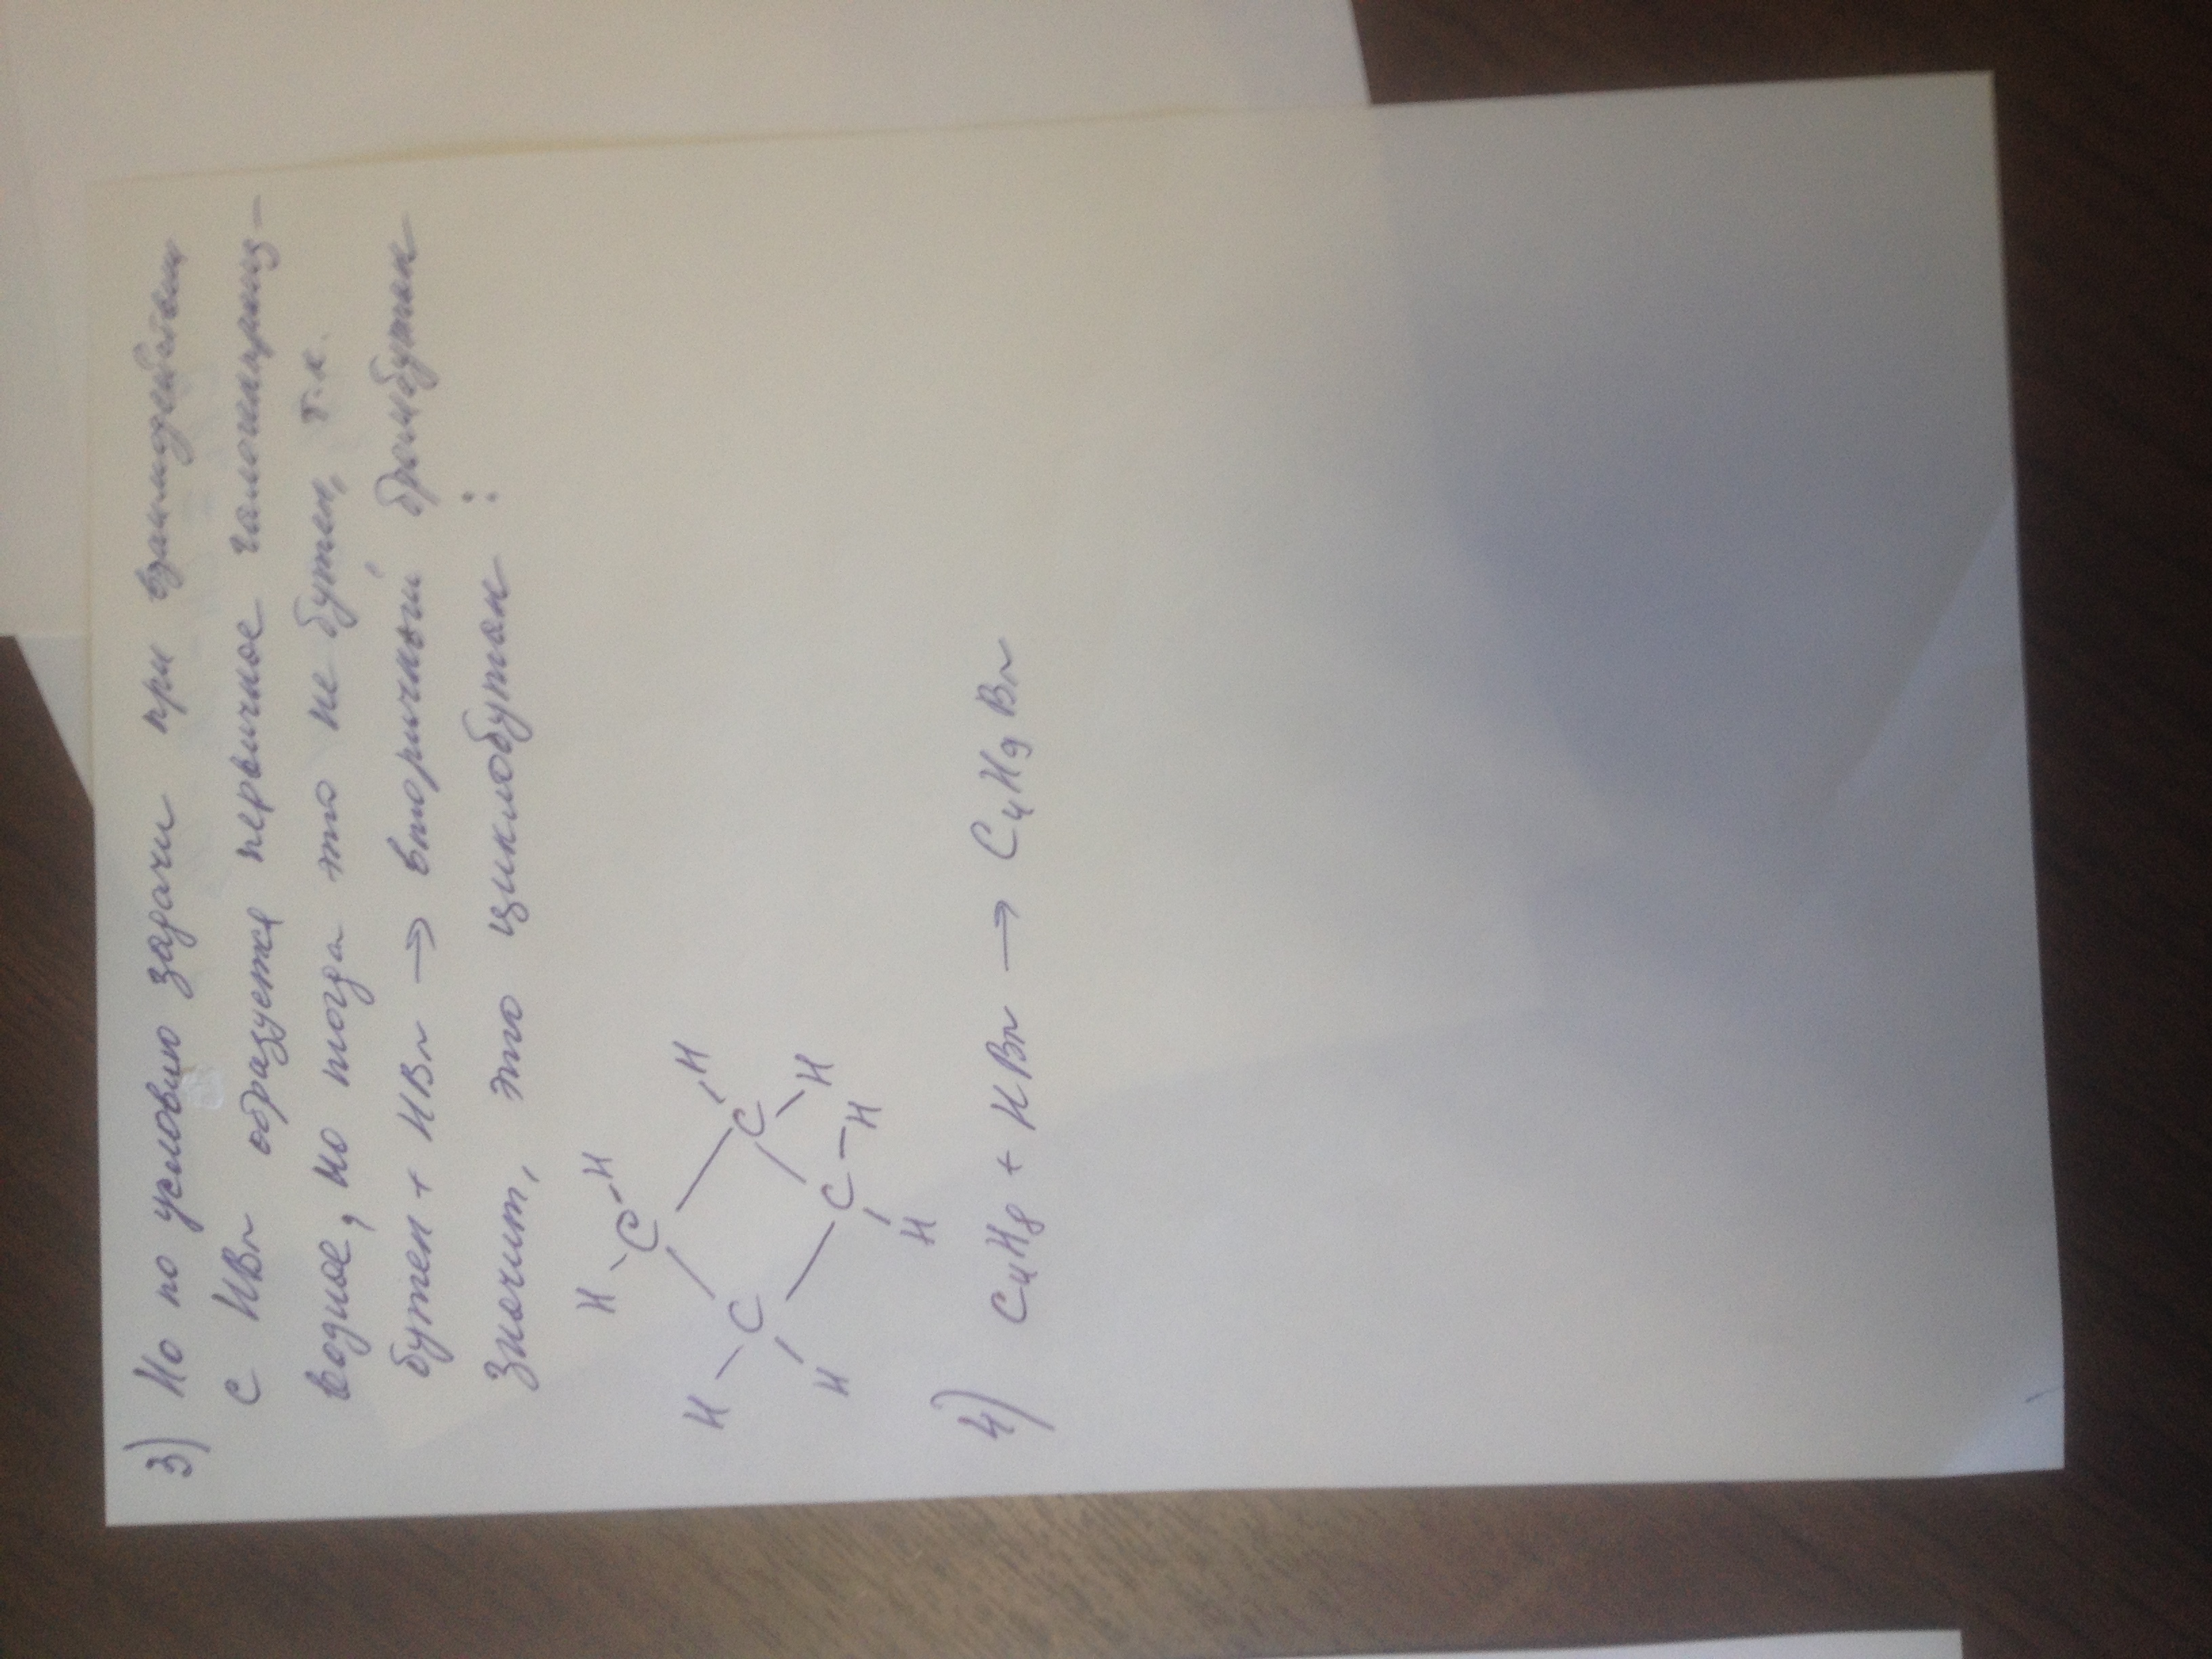 3) Но по условию задачи при взаимодействии
с HBr образуется первичное галогенпроиз-
водное, но тогда это не бутен, т.к.
бутен + HBr → вторичный бромбутан
Значит, это циклобутан :
H H
C
H C C H
H C H
H H
4) C4H8 + HBr → C4H9Br